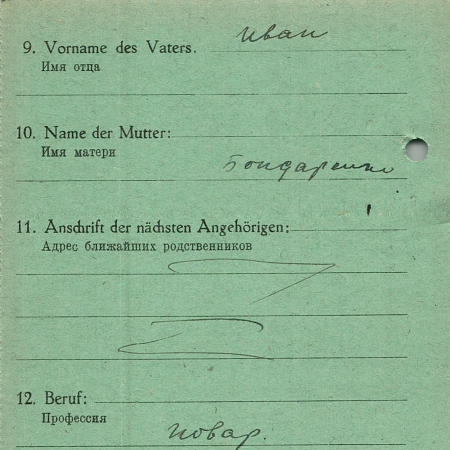 9. Vorname des Vaters. Иван
Имя отца
10. Name der Mutter:
Имя матери
Бондаренко
11. Anschrift der nächsten Angehörigen:
Адрес ближайших родственников
12. Beruf:
Профессия
повар.